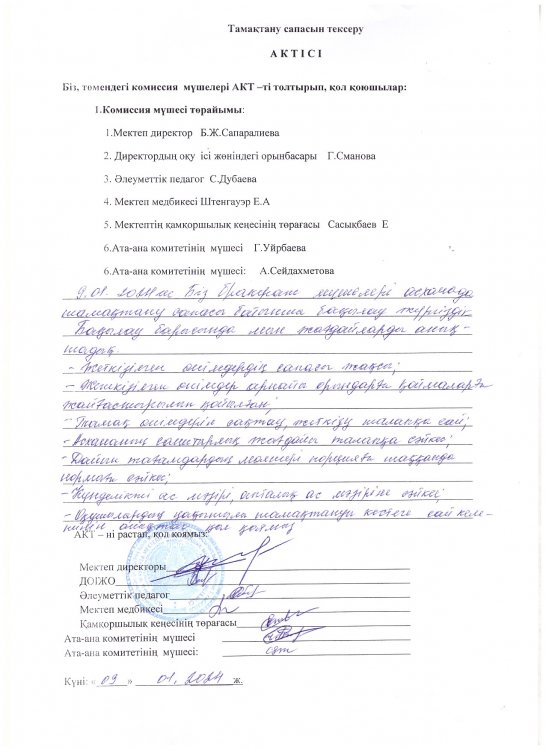 Тамақтану сапасын тексеру
АКТІСІ
Біз, төмендегі комиссия мүшелері АКТ –ті толтырып, қол қоюшылар:
1.Комиссия мүшесі төрайымы:
1.Мектеп директор Б.Ж.Сапаралиева
2. Директордың оқу ісі жөніндегі орынбасары Г.Сманова
3. Әлеуметтік педагог С.Дубаева
4. Мектеп медбикесі Штенгауэр Е.А
5. Мектептің қамқоршылық кеңесінің төрағасы Сасықбаев Е
6.Ата-ана комитетінің мүшесі Г.Уйрбаева
6.Ата-ана комитетінің мүшесі: А.Сейдахметова
9.01.2024 ж Біз бракераж мүшелері асханада
тамақтану сапасы бойынша бақылау жүргіздік
Бақылау барысында мына жағдайларды анық-
тадық.
- Жеткізілген өнімдердің сапасы жақсы;
- Жеткізілген өнімдер арнайы орындарға қоймаларға
жайғастырылып қойылған;
- Тамақ өнімдерін сақтау, жеткізу талапқа сай;
- Асхананың санитарлық жағдайы талапқа сәйкес;
- Дайын тағамдардың мөлшері порцияға шаққанда
нормаға сәйкес;
- Күнделікті ас мәзірі, апталық ас мәзіріне сәйкес;
- Оқушылардың тамақтануы кестеге сай келе-
қол қоямыз
АКТ – ні растап, қол коямыз:
Мектеп директоры
ДОІЖО
Әлеуметтік педагог
Мектеп медбикесі
Қамқоршылық кеңесінің төрағасы
Ата-ана комитетінің мүшесі
Ата-ана комитетінің мүшесі:
Күні: « 09 » 01. 2024 ж.